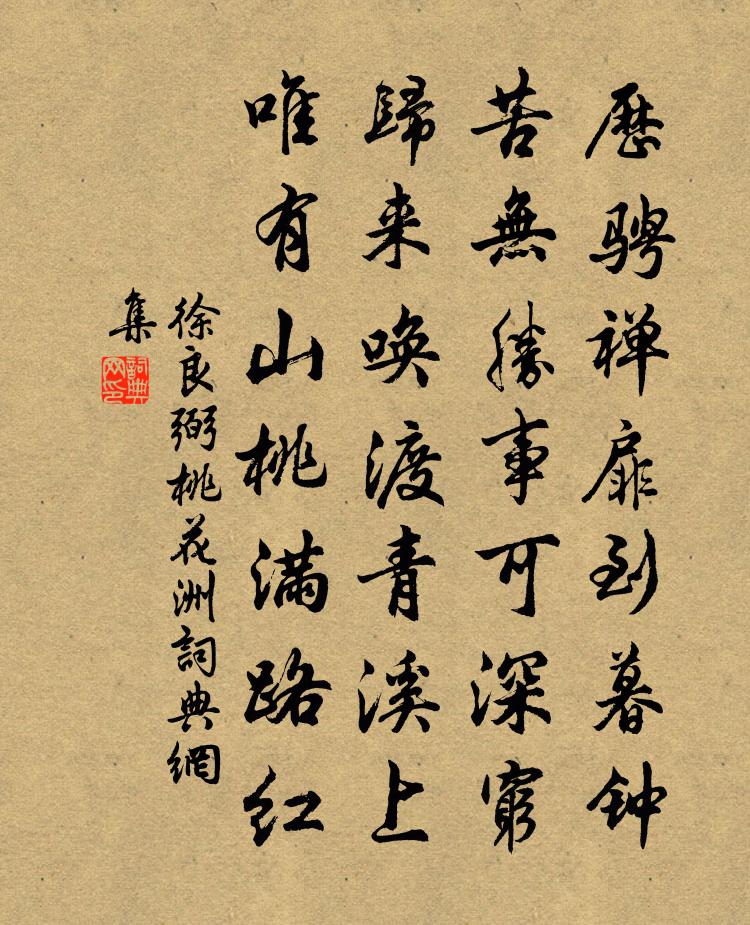 歷骋禅扉到暮钟
苦無勝事可深窮
歸来唤渡青溪上
唯有山桃满路红
徐良弼桃花洲詞典網
集
詞典网印